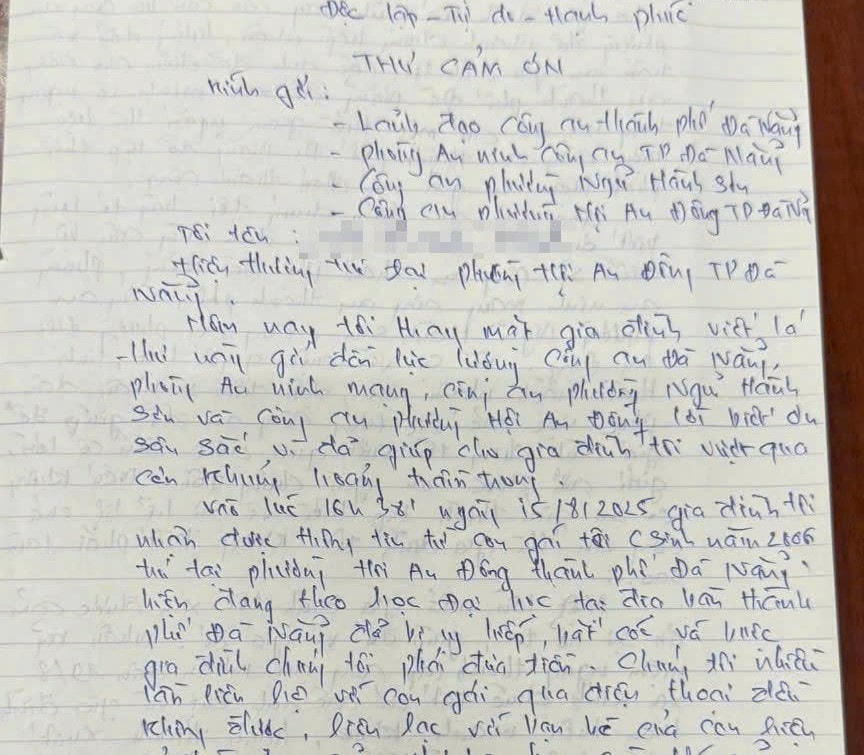 Độc lập - Tự do - Hạnh phúc
THƯ CẢM ƠN
Kính gửi:
- Lãnh đạo Công an thành phố Đà Nẵng
- Phòng An ninh Công an TP Đà Nẵng
- Công an phường Ngũ Hành Sơn
- Công an phường Hội An Đông TP Đà Nẵ
Tôi tên :
Hiện thường trú tại phường Hội An Đông TP Đà
Nẵng.
Hôm nay tôi thay mặt gia đình viết lá
thư này gửi đến lực lượng Công an Đà Nẵng,
phòng An ninh mạng, công an phường Ngũ Hành
Sơn và Công an phường Hội An Đông lời biết ơn
sâu sắc vì đã giúp cho gia đình tôi vượt qua
cơn khủng hoảng trầm trọng.
Vào lúc 16h38' ngày 15/8/2025 gia đình tôi
nhận được thông tin từ con gái tôi (sinh năm 2006
trú tại phường Hội An Đông thành phố Đà Nẵng.
hiện đang theo học Đại học tại địa bàn thành
phố Đà Nẵng đã bị uy hiếp bắt cóc và buộc
gia đình chúng tôi phải đưa tiền. Chúng tôi nhiều
lần liên hệ với con gái qua điện thoại đều
không được, liên lạc với bạn bè của con